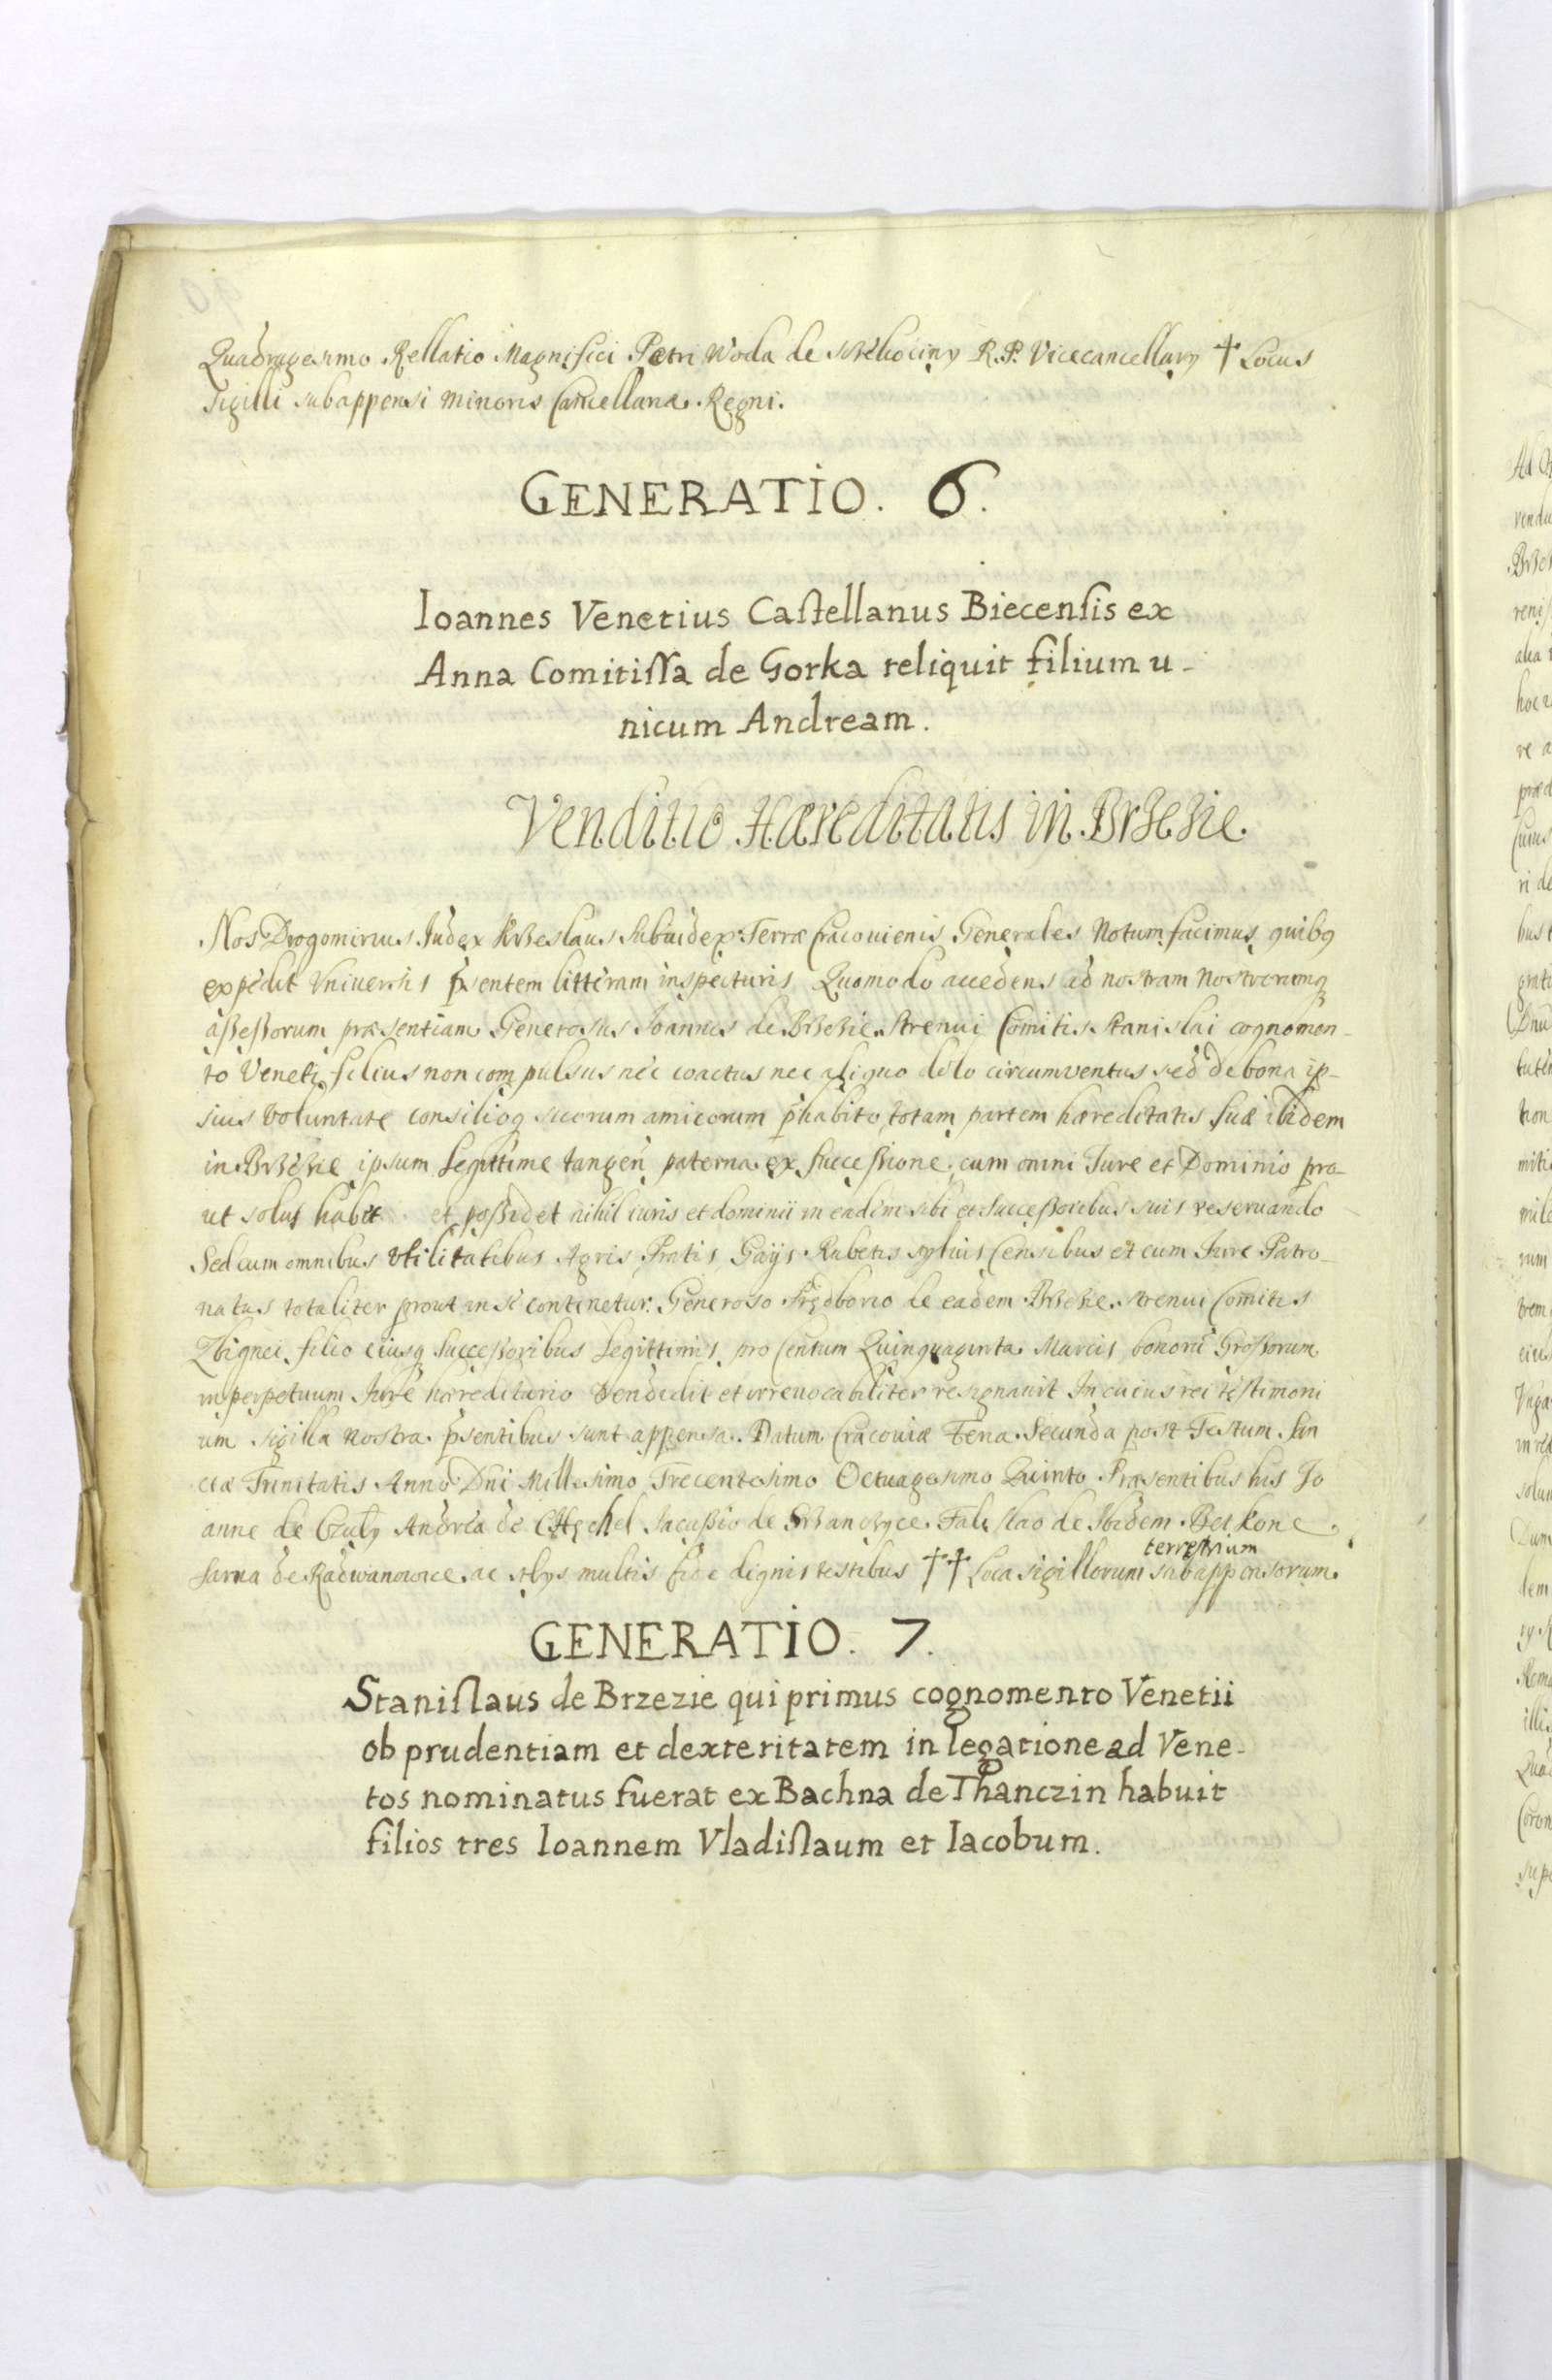 Quadragesimo Rellatio Magnifici Petri Woda de R. P. Vicecancellarÿ † Locus
Sigilli subappensi minoris Cancellariæ Regni.
GENERATIO. 6.
Ioannes Venetius Castellanus Biecensis ex
Anna Comitissa de Gorka reliquit filium u-
nicum Andream.
Venditio Hæreditatis in Brzezie
Nos Drogomirus Judex Krzeslaus Subiudex Terræ Cracouienis Generales Notum facimus quibq
expedit Vniuersis p̄sentem litteram inspecturis Quomodo accedens ad nostram nostrorumq
assessorum præsentiam Generosus Joannes de Brzezie strenui Comitis Stanislai cognomen-
to Veneti filius non compulsus nec coactus nec aliquo dolo circumventus sed de bona ip-
sius voluntate consilioq suorum amicorum p̄habito totam partem hæreditatis suæ ibidem
in Brzezie ipsum legittime tangen̄ paterna ex successione cum omni Jure et Dominio pro-
ut solus habet et possedet nihil iuris et dominii in eadem sibi et successoribus suis reseruando
Sed cum omnibus vtilitatibus Agris Pratis Gaÿs Rubetis syluis Censibus et cum Jure Patro-
natus totaliter prout in se continetur. Generoso Predborio de eadem Brzezie strenui Comitis
Zbignei filio eiusq Successoribus Legittimis pro Centum Quinquaginta Marcis bonorū Grossorum
in perpetuum Jure hæreditario Vendidit et irreuocabiliter resignauit In cuius rei testimoni
um sigilla nostra p̄sentibus sunt appensa. Datum Cracouiæ Feria Secunda post Festum San
ctæ Trinitatis Anno Dni Millesimo Trecentesimo Octuagesimo Quinto Præsentibus his Jo
anne de Andrea de Jacussio de Falislao de Ibidem Petkone
Sarna de Radwanowice ac alÿs multis fide dignis testibus †† Loca sigillorum terrestrium subappensorum.
GENERATIO. 7.
Stanislaus de Brzezie qui primus cognomento Venetii
ob prudentiam et dexteritatem in legatione ad Vene-
tos nominatus fuerat ex Bachna de Thanczin habuit
filios tres Ioannem Vladislaum et Iacobum.